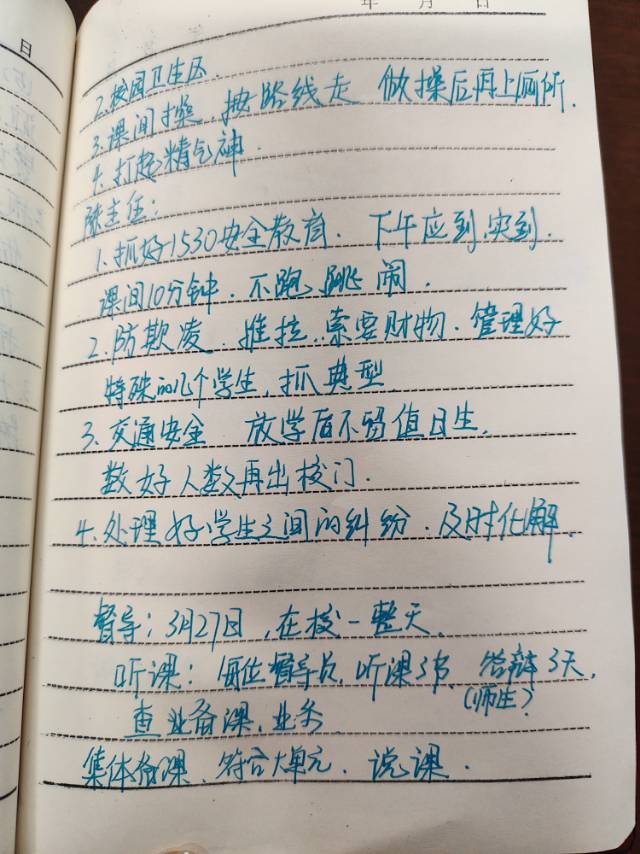 年 月 日
日
2.校园卫生区.
3.课间操、按路线走 做操后再上厕所.
4.打起精气神.
陈主任:
1.抓好1530安全教育. 下午应到.实到.
课间10分钟. 不跑、跳 闹.
2.防欺凌. 推拉. 索要财物. 管理好
特殊的几个学生, 抓典型
3.交通安全 放学后不留值日生.
数好人数再出校门.
4.处理好学生之间的纠纷. 及时化解.
督导: 3月27日, 在校一整天.
听课: 每位督导员, 听课3节. 答辩3天.
(师生?)
查业备课、业务
集体备课、符合大单元. 说课.